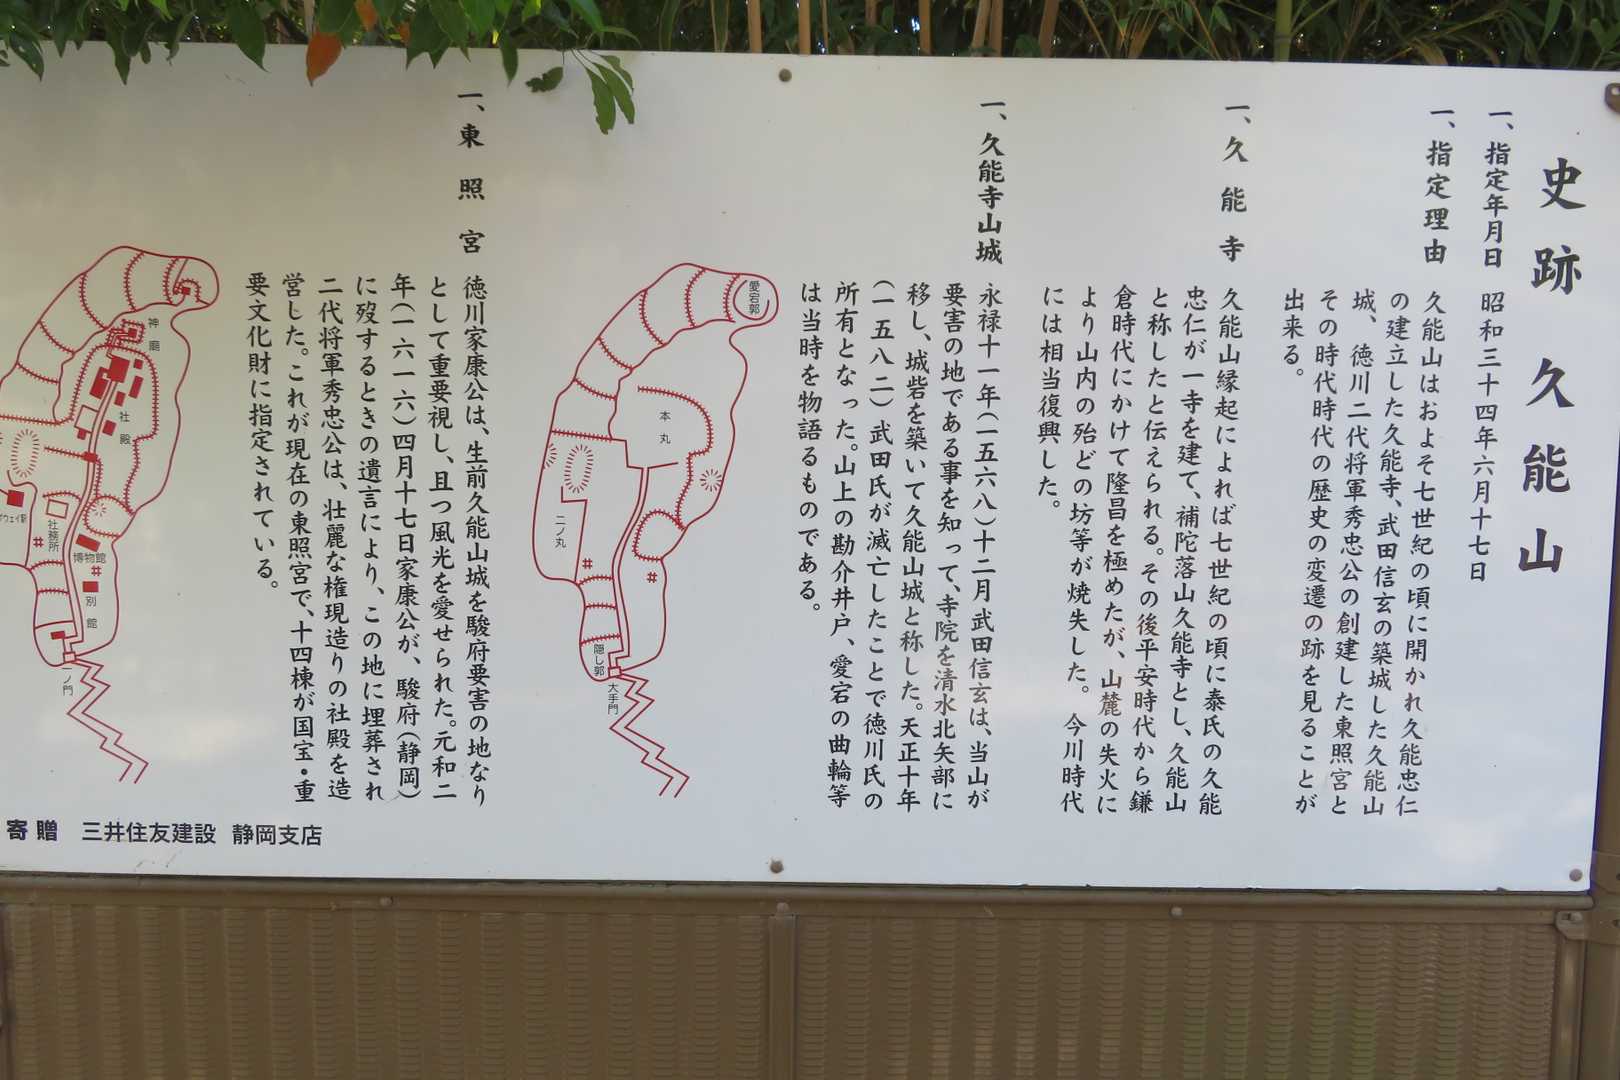 史跡 久能山
一、指定年月日 昭和三十四年六月十七日
一、指定理由 久能山はおよそ七世紀の頃に開かれ久能忠仁
の建立した久能寺、武田信玄の築城した久能山
城、徳川二代将軍秀忠公の創建した東照宮と
その時代時代の歴史の変遷の跡を見ることが
出来る。
一、久能寺 久能山縁起によれば七世紀の頃に泰氏の久能
忠仁が一寺を建て、補陀落山久能寺とし、久能山
と称したと伝えられる。その後平安時代から鎌
倉時代にかけて隆昌を極めたが、山麓の失火に
より山内の殆どの坊等が焼失した。今川時代
には相当復興した。
一、久能寺山城 永禄十一年(一五六八)十二月武田信玄は、当山が
要害の地である事を知って、寺院を清水北矢部に
移し、城砦を築いて久能山城と称した。天正十年
(一五八二)武田氏が滅亡したことで徳川氏の
所有となった。山上の勘介井戸、愛宕の曲輪等
は当時を物語るものである。
愛宕郭
本丸
二ノ丸
隠し郭
大手門
一、東照宮 徳川家康公は、生前久能山城を駿府要害の地なり
として重要視し、且つ風光を愛せられた。元和二
年(一六一六)四月十七日家康公が、駿府(静岡)
に歿するときの遺言により、この地に埋葬され
二代将軍秀忠公は、壮麗な権現造りの社殿を造
営した。これが現在の東照宮で、十四棟が国宝・重
要文化財に指定されている。
神廟
社殿
社務所
博物館
別館
一ノ門
ウェイ駅
寄贈 三井住友建設 静岡支店